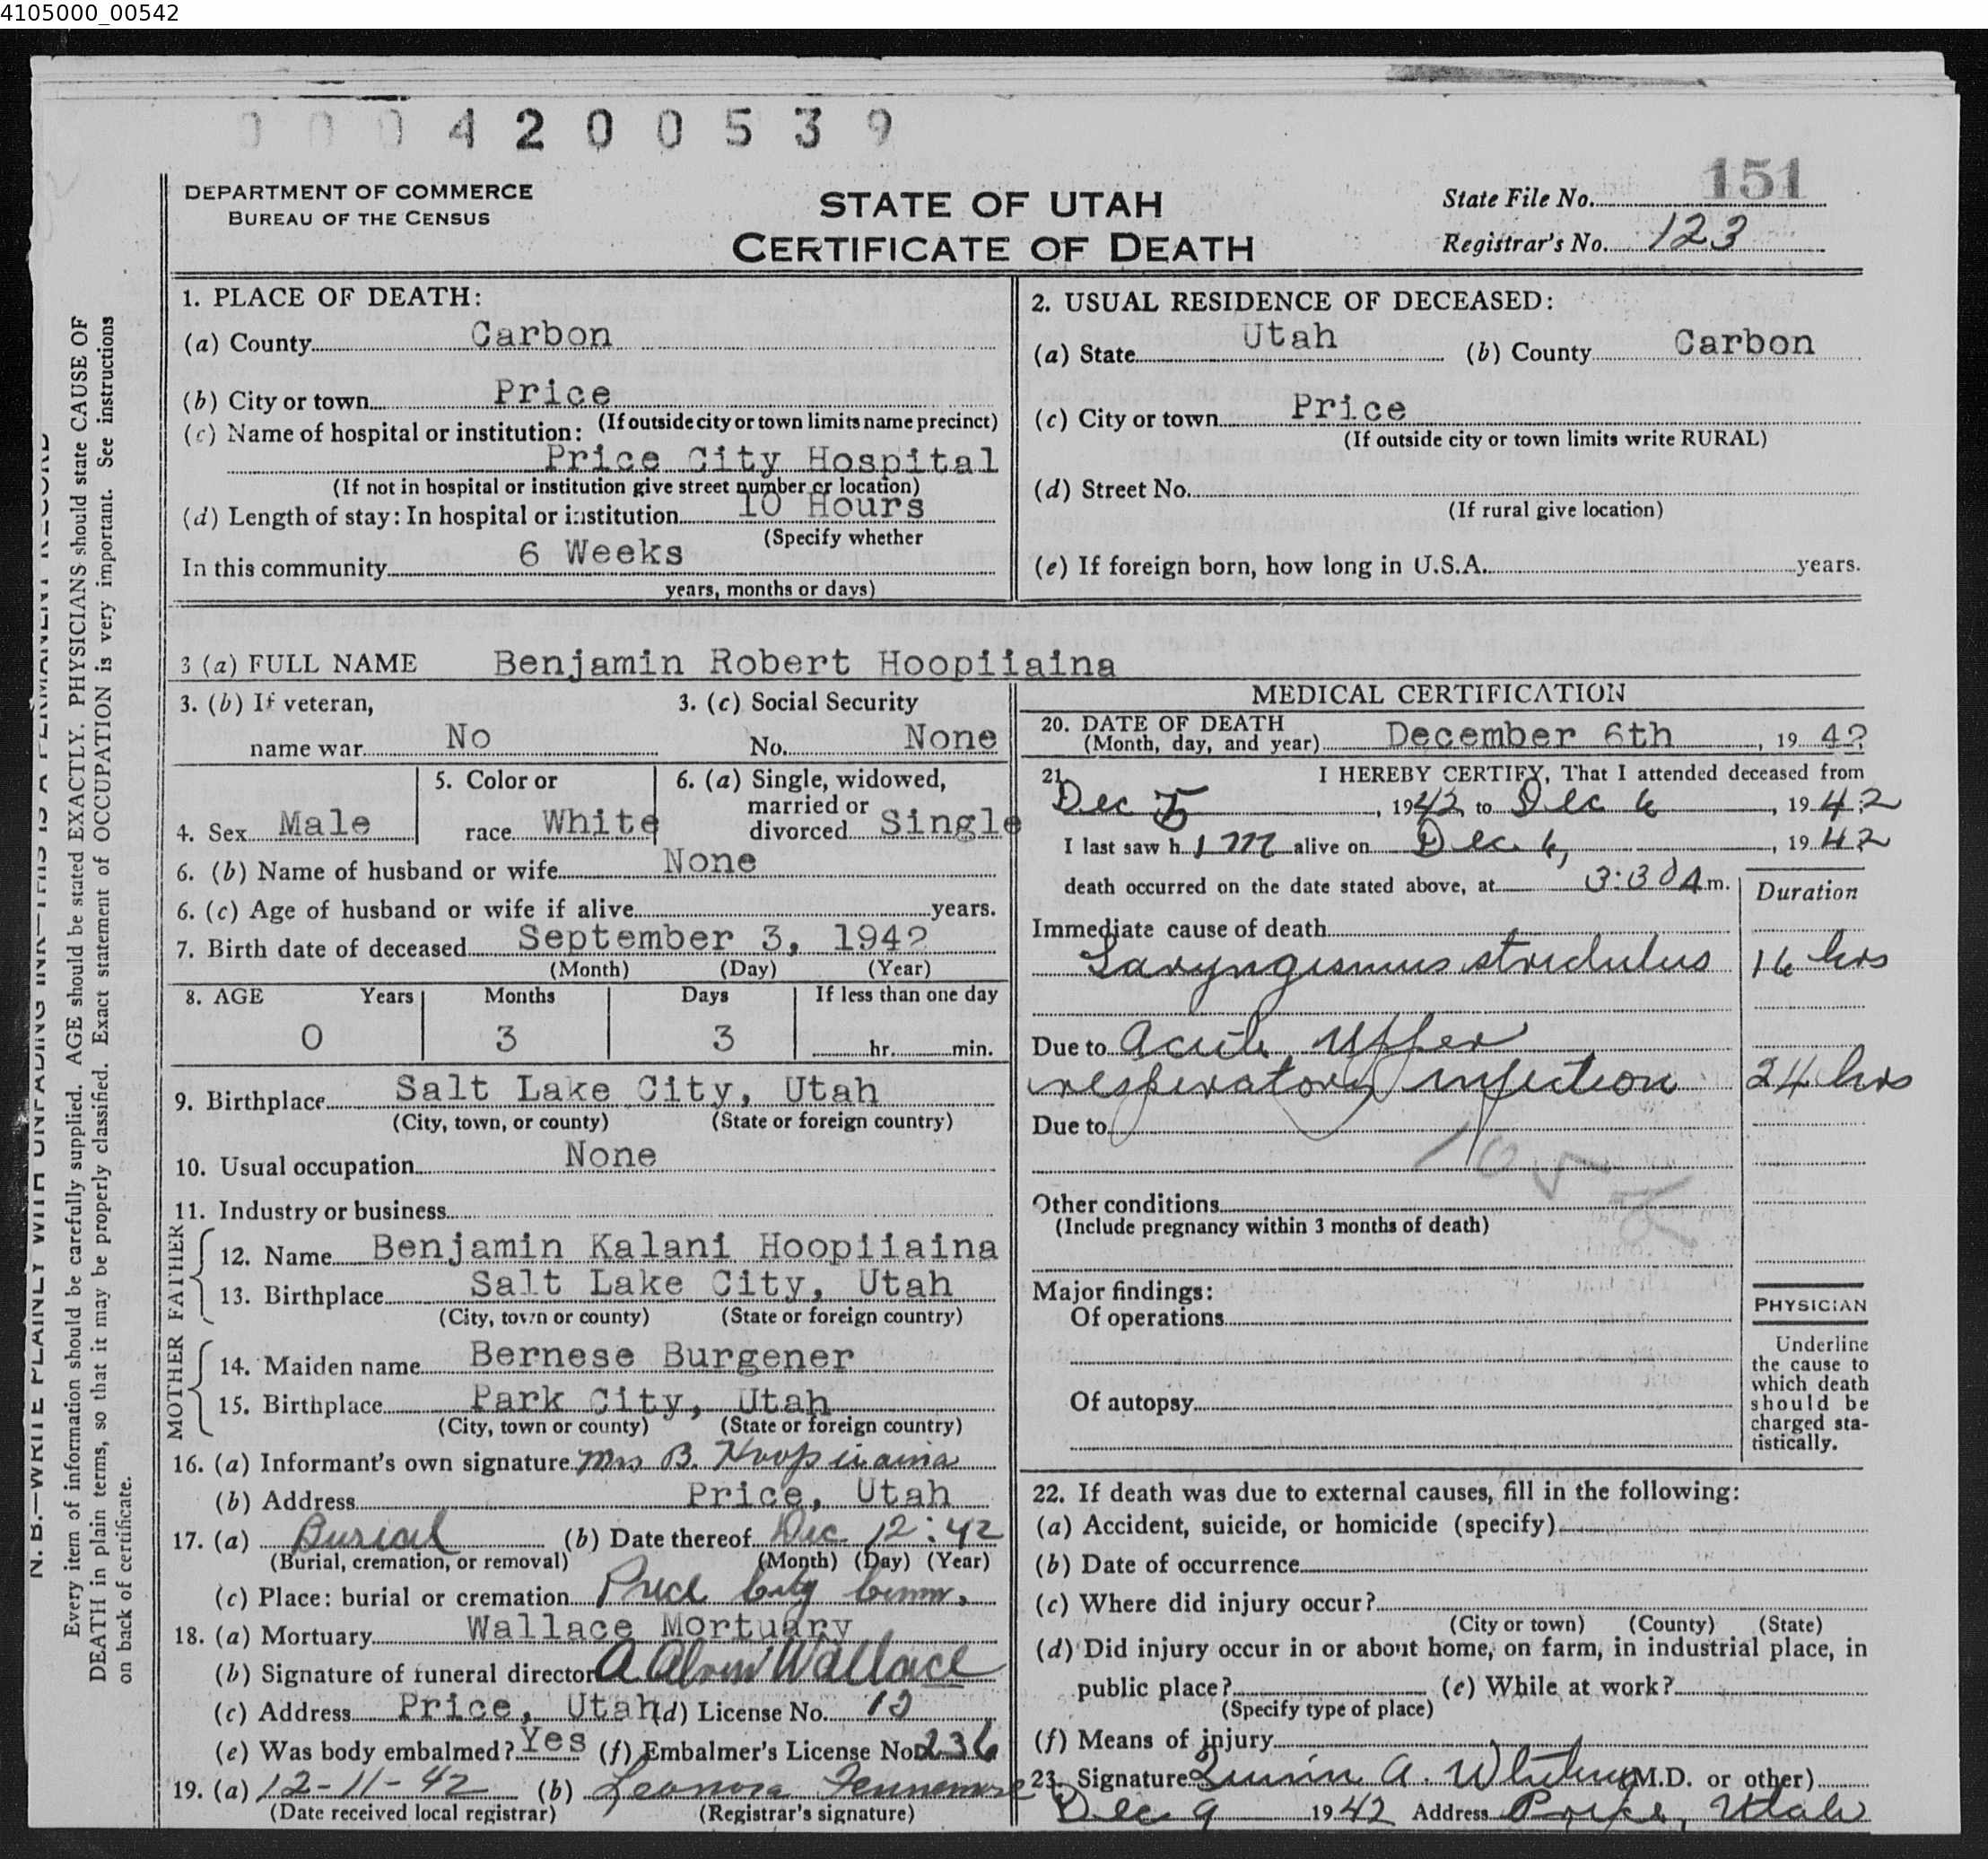 4105000_00542
0004200539
151
DEPARTMENT OF COMMERCE
BUREAU OF THE CENSUS
STATE OF UTAH
CERTIFICATE OF DEATH
State File No.
Registrar's No. 123
1. PLACE OF DEATH:
(a) County Carbon
(b) City or town Price
(If outside city or town limits name precinct)
(c) Name of hospital or institution:
Price City Hospital
(If not in hospital or institution give street number or location)
(d) Length of stay: In hospital or institution 10 Hours
(Specify whether
In this community 6 Weeks
years, months or days)
2. USUAL RESIDENCE OF DECEASED:
(a) State Utah (b) County Carbon
(c) City or town Price
(If outside city or town limits write RURAL)
(d) Street No.
(If rural give location)
(e) If foreign born, how long in U.S.A. years.
3 (a) FULL NAME Benjamin Robert Hoopiiaina
3. (b) If veteran, 3. (c) Social Security
name war No No. None
4. Sex Male
5. Color or
race White
6. (a) Single, widowed,
married or
divorced Single
6. (b) Name of husband or wife None
6. (c) Age of husband or wife if alive years.
7. Birth date of deceased September 3, 1942
(Month) (Day) (Year)
8. AGE Years Months Days If less than one day
0 3 3 hr. min.
9. Birthplace Salt Lake City, Utah
(City, town, or county) (State or foreign country)
10. Usual occupation None
11. Industry or business
FATHER
12. Name Benjamin Kalani Hoopiiaina
13. Birthplace Salt Lake City, Utah
(City, town or county) (State or foreign country)
MOTHER
14. Maiden name Bernese Burgener
15. Birthplace Park City, Utah
(City, town or county) (State or foreign country)
16. (a) Informant's own signature Mrs B. Hoopiiaina
(b) Address Price, Utah
17. (a) Burial (b) Date thereof Dec. 12 : 42
(Burial, cremation, or removal) (Month) (Day) (Year)
(c) Place: burial or cremation Price City Cem.
18. (a) Mortuary Wallace Mortuary
(b) Signature of funeral director A Alvin Wallace
(c) Address Price, Utah (d) License No.
(e) Was body embalmed? Yes (f) Embalmer's License No. 236
19. (a) 12-11-42 (b) Leonora Fennemore
(Date received local registrar) (Registrar's signature)
MEDICAL CERTIFICATION
20. DATE OF DEATH
(Month, day, and year) December 6th, 1942
21. I HEREBY CERTIFY, That I attended deceased from
Dec 5, 1942 to Dec 6, 1942
I last saw him alive on Dec. 6, 1942
death occurred on the date stated above, at 3:30 A m.
Duration
Immediate cause of death
Laryngismus stridulus 16 hrs
Due to Acute upper
respiratory infection 24 hrs
Due to
105
Other conditions
(Include pregnancy within 3 months of death)
Major findings:
Of operations
Of autopsy
PHYSICIAN
Underline
the cause to
which death
should be
charged sta-
tistically.
22. If death was due to external causes, fill in the following:
(a) Accident, suicide, or homicide (specify)
(b) Date of occurrence
(c) Where did injury occur?
(City or town) (County) (State)
(d) Did injury occur in or about home, on farm, in industrial place, in
public place? (e) While at work?
(Specify type of place)
(f) Means of injury
23. Signature Quinn A. Whiting (M.D. or other)
Dec 9 1942 Address Price, Utah
N. B.—WRITE PLAINLY WITH UNFADING INK—THIS IS A PERMANENT RECORD
Every item of information should be carefully supplied. AGE should be stated EXACTLY. PHYSICIANS should state CAUSE OF
DEATH in plain terms, so that it may be properly classified. Exact statement of OCCUPATION is very important. See instructions
on back of certificate.